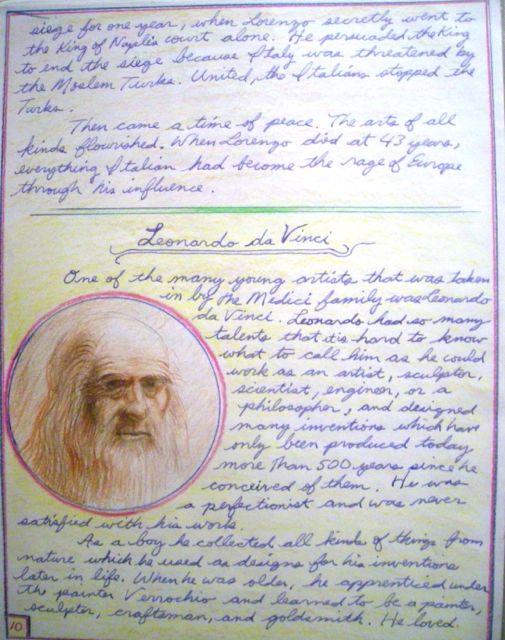 siege for one year, when Lorenzo secretly went to
the King of Naples court alone. He persuaded the King
to end the siege because Italy was threatened by
the Moslem Turks. United, the Italians stopped the
Turks.
Then came a time of peace. The arts of all
kinds flourished. When Lorenzo died at 43 years,
everything Italian had become the rage of Europe
through his influence.
Leonardo da Vinci
One of the many young artists that was taken
in by the Medici family was Leonardo
da Vinci. Leonardo had so many
talents that it's hard to know
what to call him as he could
work as an artist, sculptor,
scientist, engineer, or a
philosopher, and designed
many inventions which have
only been produced today
more than 500 years since he
conceived of them. He was
a perfectionist and was never
satisfied with his work.
As a boy he collected all kinds of things from
nature which he used as designs for his inventions
later in life. When he was older, he apprenticed under
the painter Verrochio and learned to be a painter,
sculpter, craftsman, and goldsmith. He loved
10